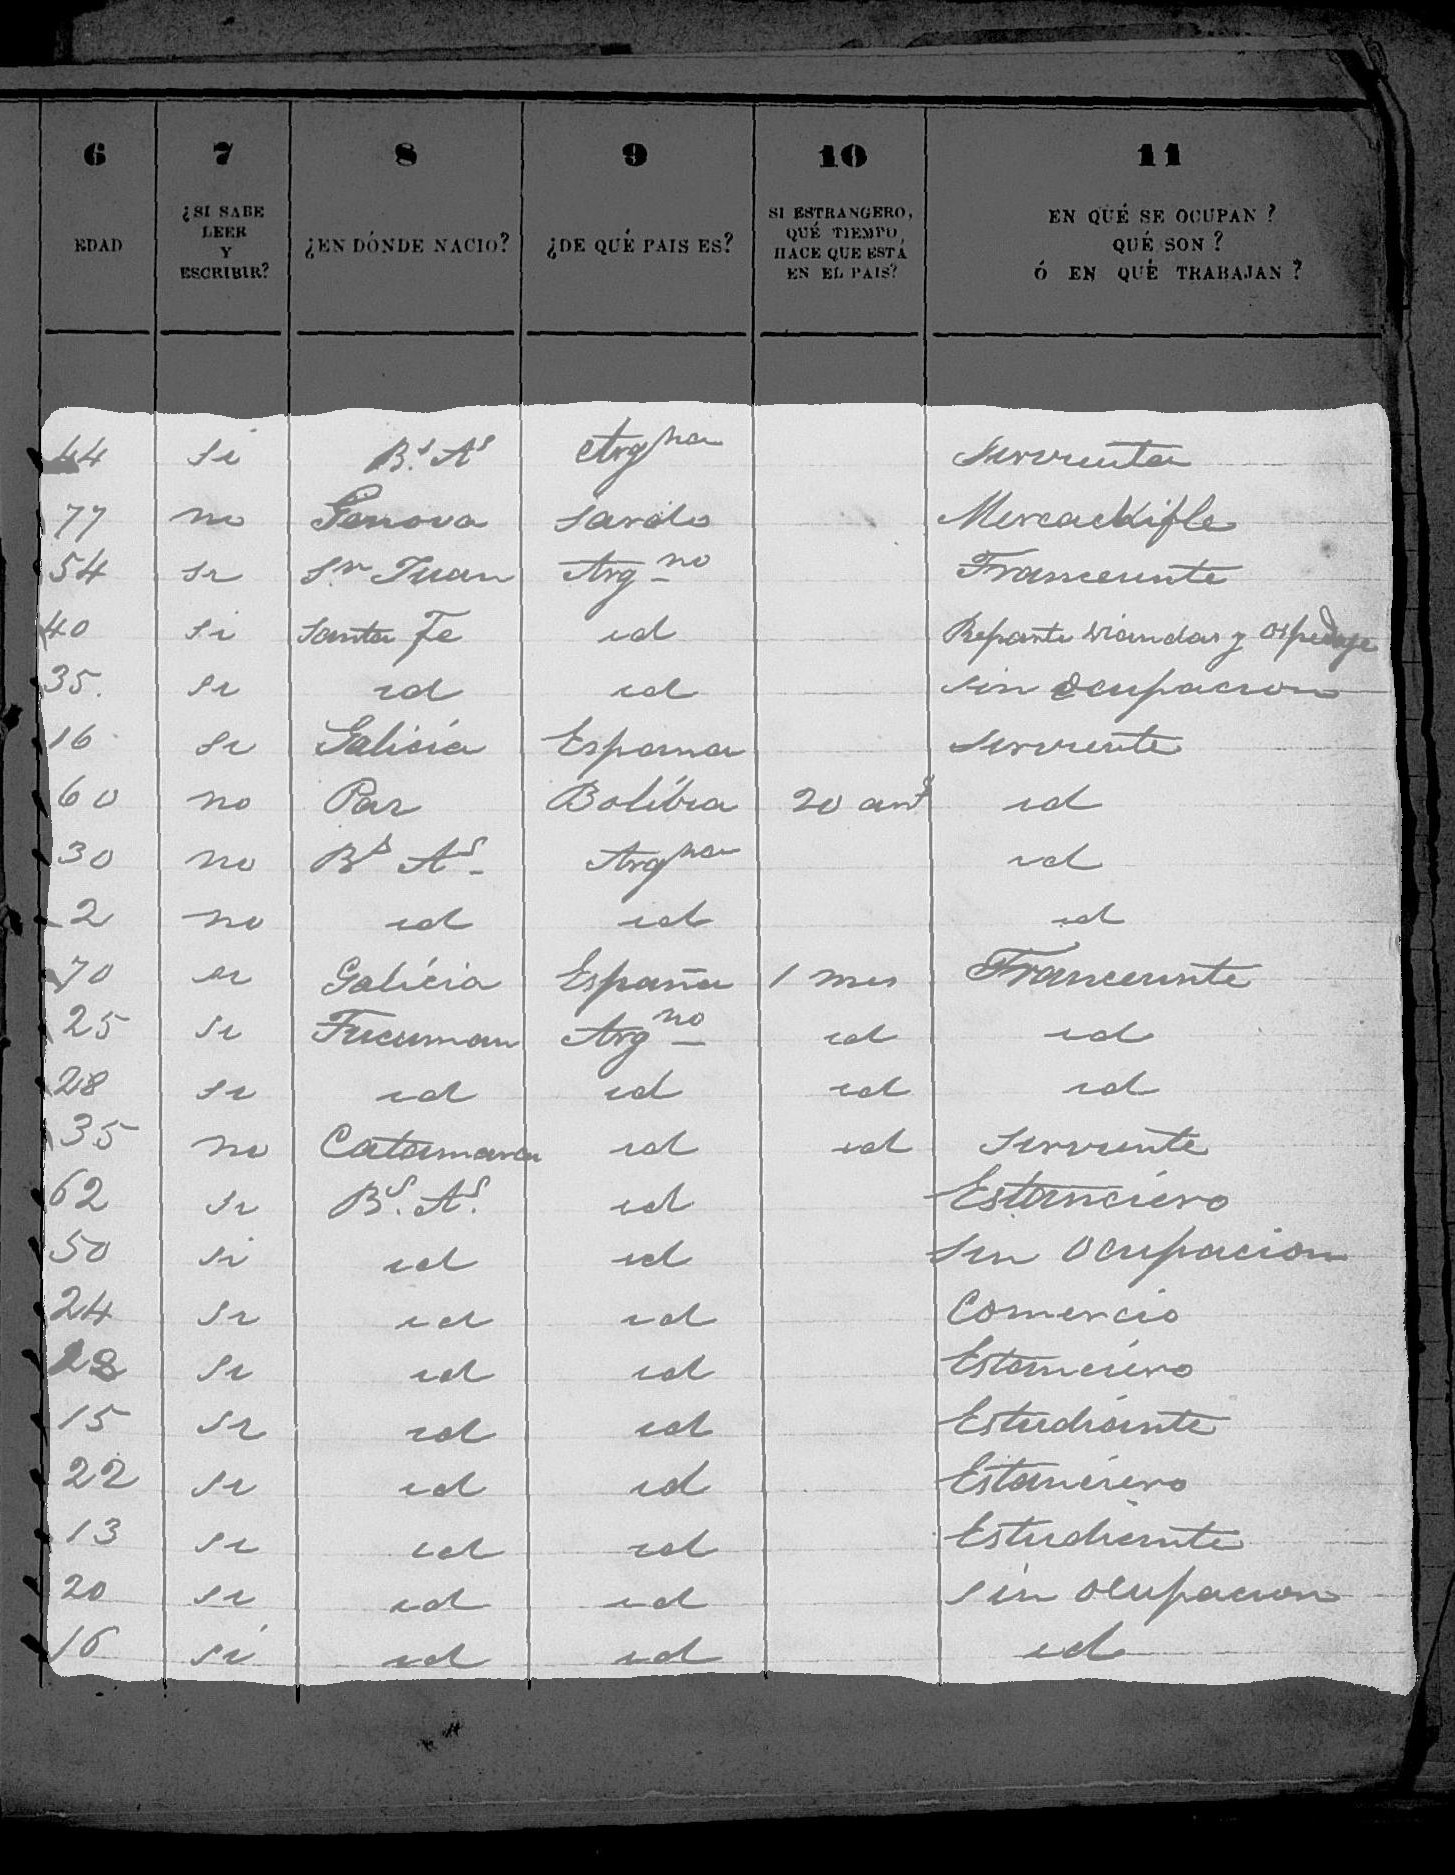 6 7 8 9 10 11
EDAD ¿SI SABE LEER Y ESCRIBIR? ¿EN DÓNDE NACIO? ¿DE QUÉ PAIS ES? SI ESTRANGERO, QUÉ TIEMPO HACE QUE ESTÁ EN EL PAIS? EN QUÉ SE OCUPAN? QUÉ SON? Ó EN QUÉ TRABAJAN?
44 si B.s As Argna Sirvienta
77 no Genova Sardo Mercachifle
54 si Sn Juan Argno Transeunte
40 si Santa Fe id Reparte viandas y ospedaje
35. si id id sin ocupacion
16 si Galicia España Sirviente
60 no Paz Bolibia 20 ans id
30 no Bs As Argna id
2 no id id id
70 si Galicia España 1 mes Transeunte
25 si Tucuman Argno id id
28 si id id id id
35 no Catamarca id id Sirviente
62 si Bs. As. id Estanciero
50 si id id sin ocupacion
24 si id id Comercio
28 si id id Estanciero
15 si id id Estudiante
22 si id id Estanciero
13 si id id Estudiante
20 si id id sin ocupacion
16 si id id id